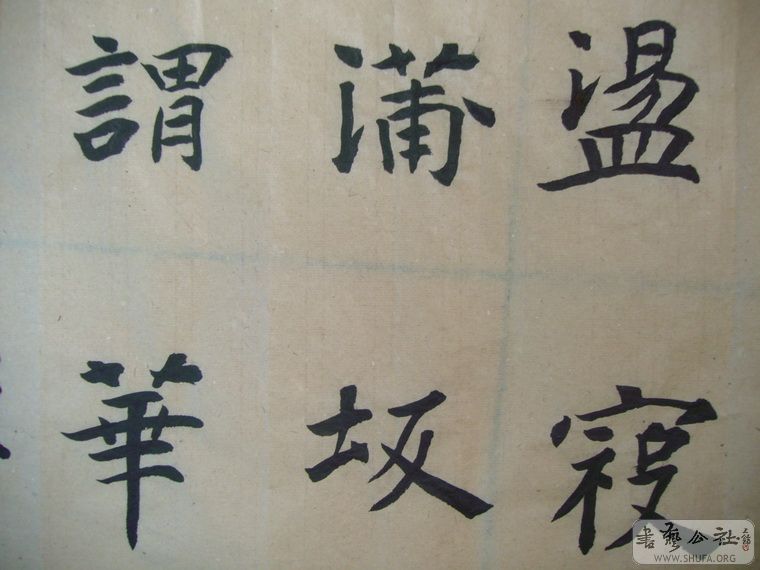 盪
蒲坂
謂華
書藝公社
WWW.SHUFA.ORG